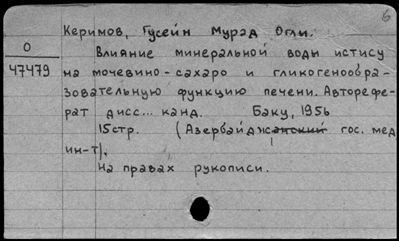 6
Керимов, Гусейн Мурад Оглы.
О
47479
Влияние минеральной воды истису
на мочевино-сахаро и гликогенообра-
зовательную функцию печени. Авторефе-
рат дисс... канд. Баку, 1956
15стр. (Азербайджанский гос. мед
ин-т).
На правах рукописи.